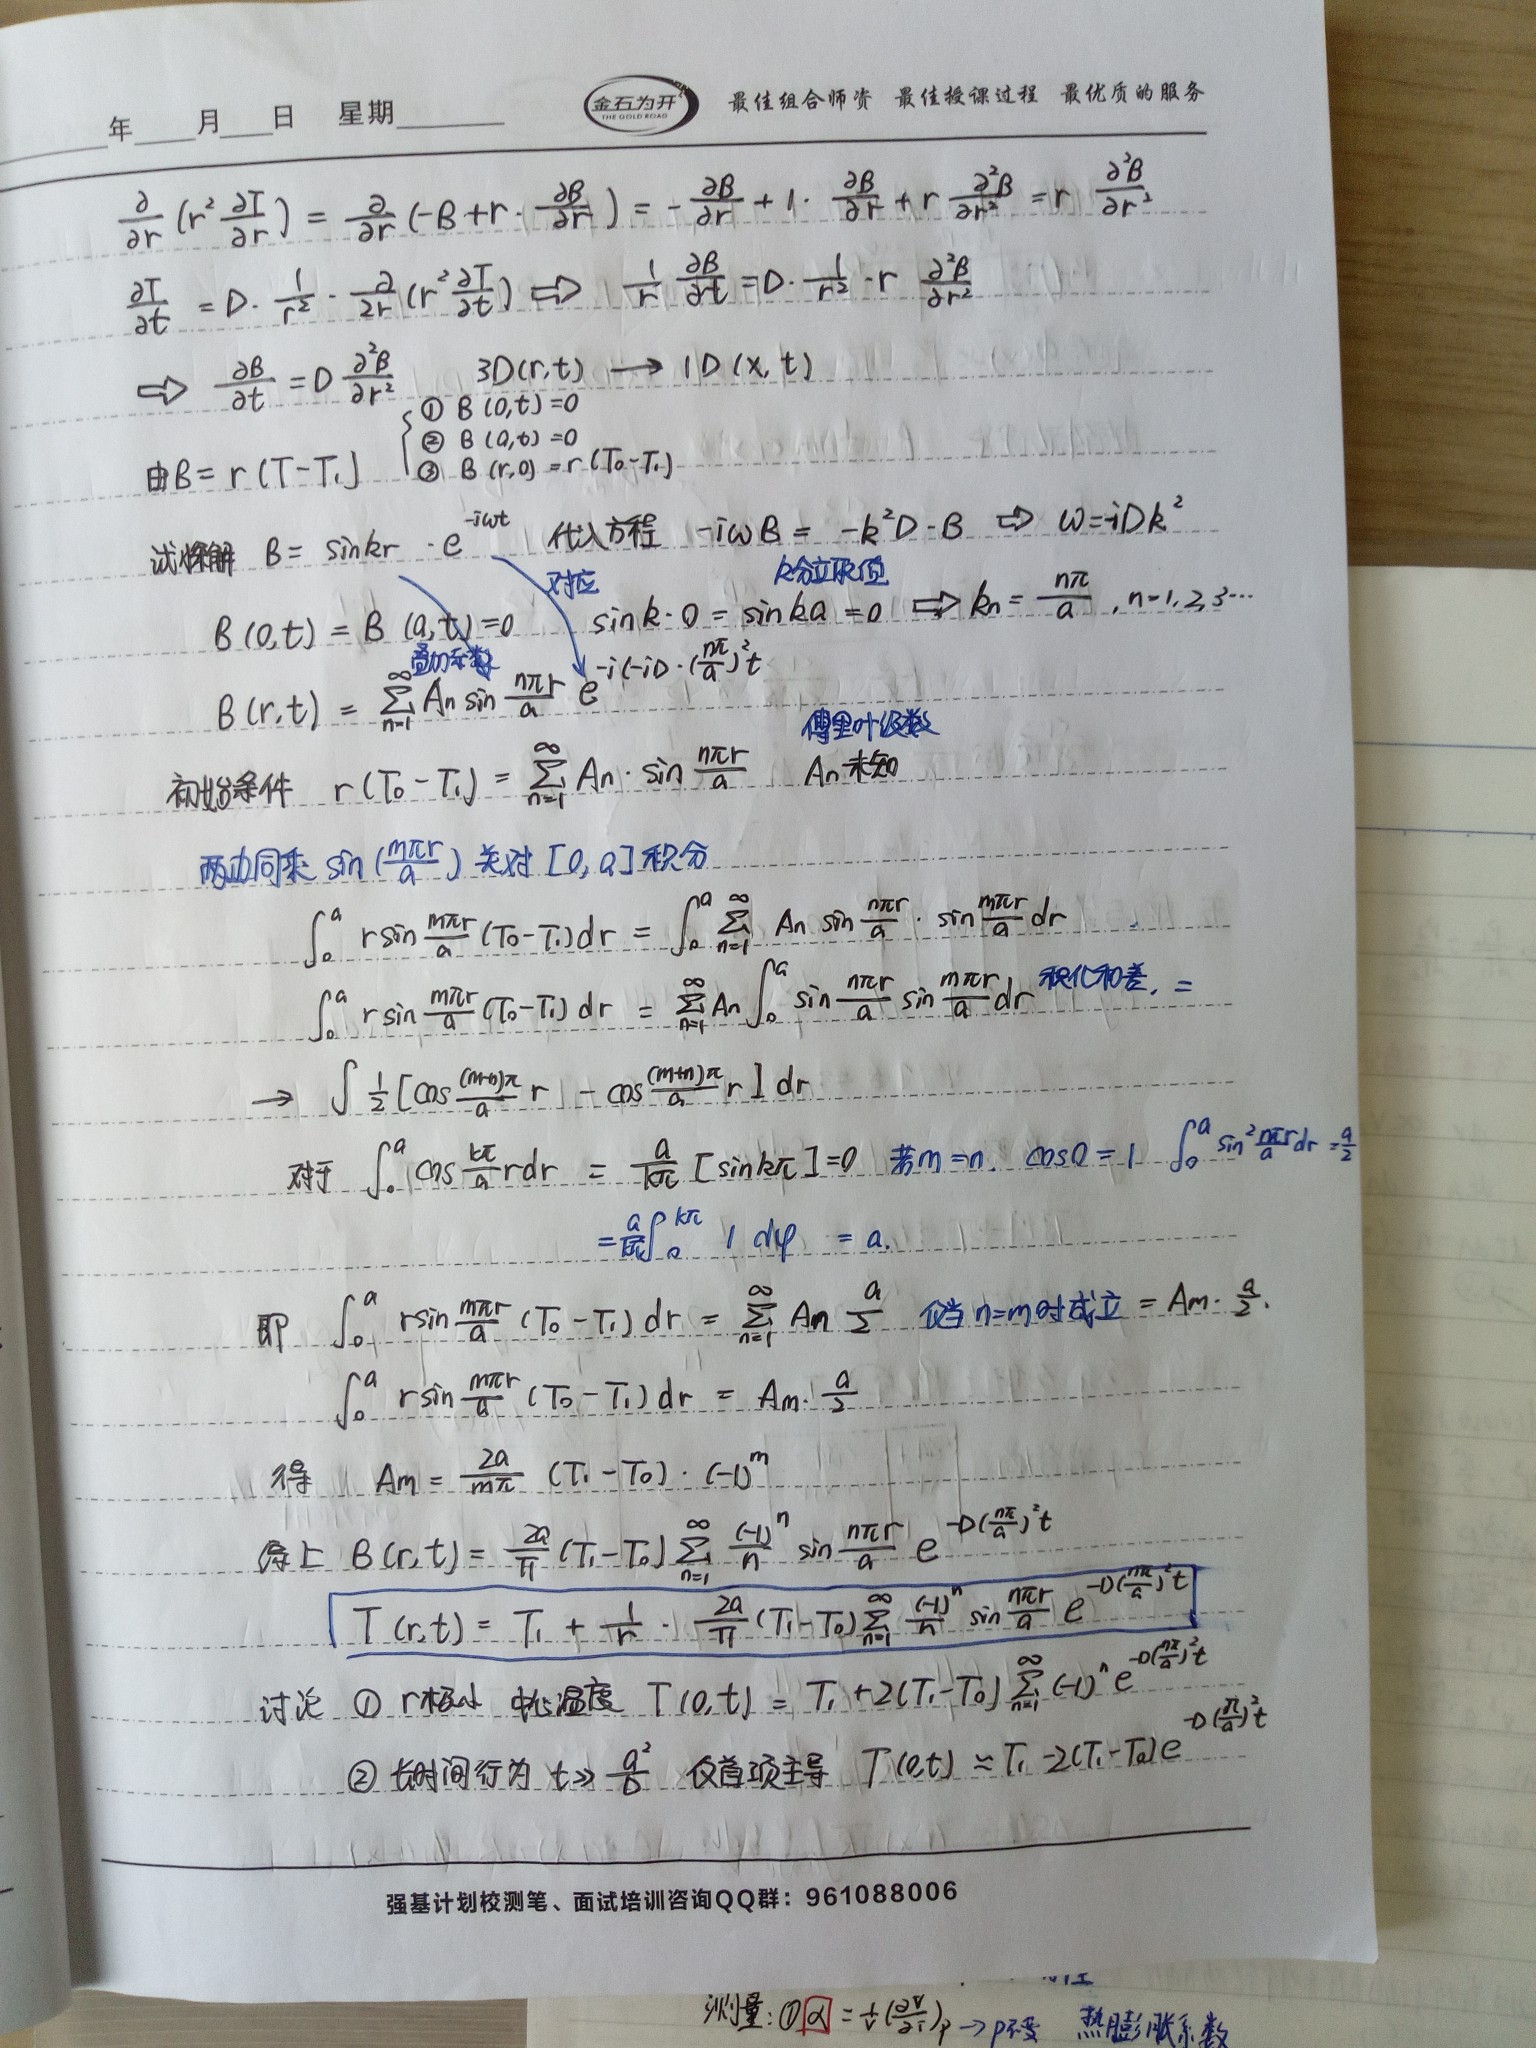 年 月 日 星期 金石为开 THE GOLD ROAD 最佳组合师资 最佳授课过程 最优质的服务
∂/∂r (r² ∂T/∂r) = ∂/∂r (-B + r · ∂B/∂r) = -∂B/∂r + 1 · ∂B/∂r + r ∂²B/∂r² = r ∂²B/∂r²
∂T/∂t = D · 1/r² · ∂/∂r (r² ∂T/∂t) ⇒ 1/r ∂B/∂t = D · 1/r² · r ∂²B/∂r²
⇒ ∂B/∂t = D ∂²B/∂r² 3D(r,t) → 1D(x,t)
① B(0,t)=0
② B(a,t)=0
由B = r(T-T₁) ③ B(r,0) = r(T₀-T₁)
试探解 B = sinkr · e^{-iωt} 代入方程 -iωB = -k²D·B ⇒ ω=-iDk²
对应 k分立取值
B(0,t) = B(a,t)=0 sink·0 = sinka = 0 ⇒ kn = nπ/a , n=1,2,3···
叠加系数
B(r,t) = ∑_{n=1}^{∞} An sin nπr/a e^{-i(-iD·(nπ/a)²t}
傅里叶级数
初始条件 r(T₀-T₁) = ∑_{n=1}^{∞} An · sin nπr/a An未知
两边同乘 sin(mπr/a) 关对 [0,a] 积分
∫₀^a r sin mπr/a (T₀-T₁)dr = ∫₀^a ∑_{n=1}^{∞} An sin nπr/a · sin mπr/a dr
∫₀^a r sin mπr/a (T₀-T₁)dr = ∑_{n=1}^{∞} An ∫₀^a sin nπr/a sin mπr/a dr 积化和差. =
→ ∫ 1/2 [cos (m-n)π/a r - cos (m+n)π/a r] dr
对于 ∫₀^a cos kπ/a r dr = a/kπ [sinkπ]=0 若m=n. cos0=1 ∫₀^a sin² nπr/a dr = a/2
= a/kπ ∫₀^{kπ} 1 dφ = a.
即 ∫₀^a r sin mπr/a (T₀-T₁)dr = ∑_{n=1}^{∞} An a/2 仅当n=m时成立 = Am · a/2.
∫₀^a r sin mπr/a (T₀-T₁)dr = Am · a/2
得 Am = 2a/mπ (T₁-T₀) · (-1)^m
综上 B(r,t) = 2a/π (T₁-T₀) ∑_{n=1}^{∞} (-1)^n/n sin nπr/a e^{-D(nπ/a)²t}
T(r,t) = T₁ + 1/r · 2a/π (T₁-T₀) ∑_{n=1}^{∞} (-1)^n/n sin nπr/a e^{-D(nπ/a)²t}
讨论 ① r极小 中心温度 T(0,t) = T₁ + 2(T₁-T₀) ∑_{n=1}^{∞} (-1)^n e^{-D(nπ/a)²t}
② 长时间行为 t≫ a²/D 仅首项主导 T(0,t) ≈ T₁ - 2(T₁-T₀)e^{-D(π/a)²t}
强基计划校测笔、面试培训咨询QQ群：961088006
测量:①α = 1/V (∂V/∂T)p → p不变 热膨胀系数